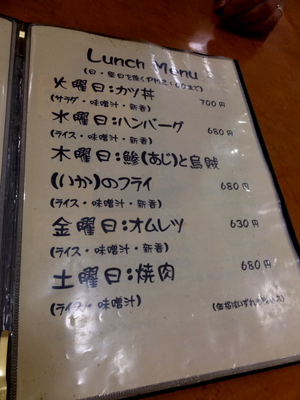 Lunch Menu
(日・祭日を除くPM2:00まで)
火曜日:カツ丼
(サラダ・味噌汁・新香) 700円
水曜日:ハンバーグ
(ライス・味噌汁・新香) 680円
木曜日:鯵(あじ)と烏賊
(いか)のフライ 680円
(ライス・味噌汁・新香)
金曜日:オムレツ 630円
(ライス・味噌汁・新香)
土曜日:焼肉 680円
(ライス・味噌汁)
(価格はいずれも